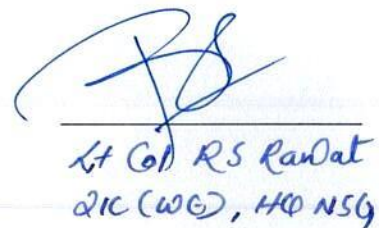 Lt Col RS Rawat
2IC (WG), HQ NSG